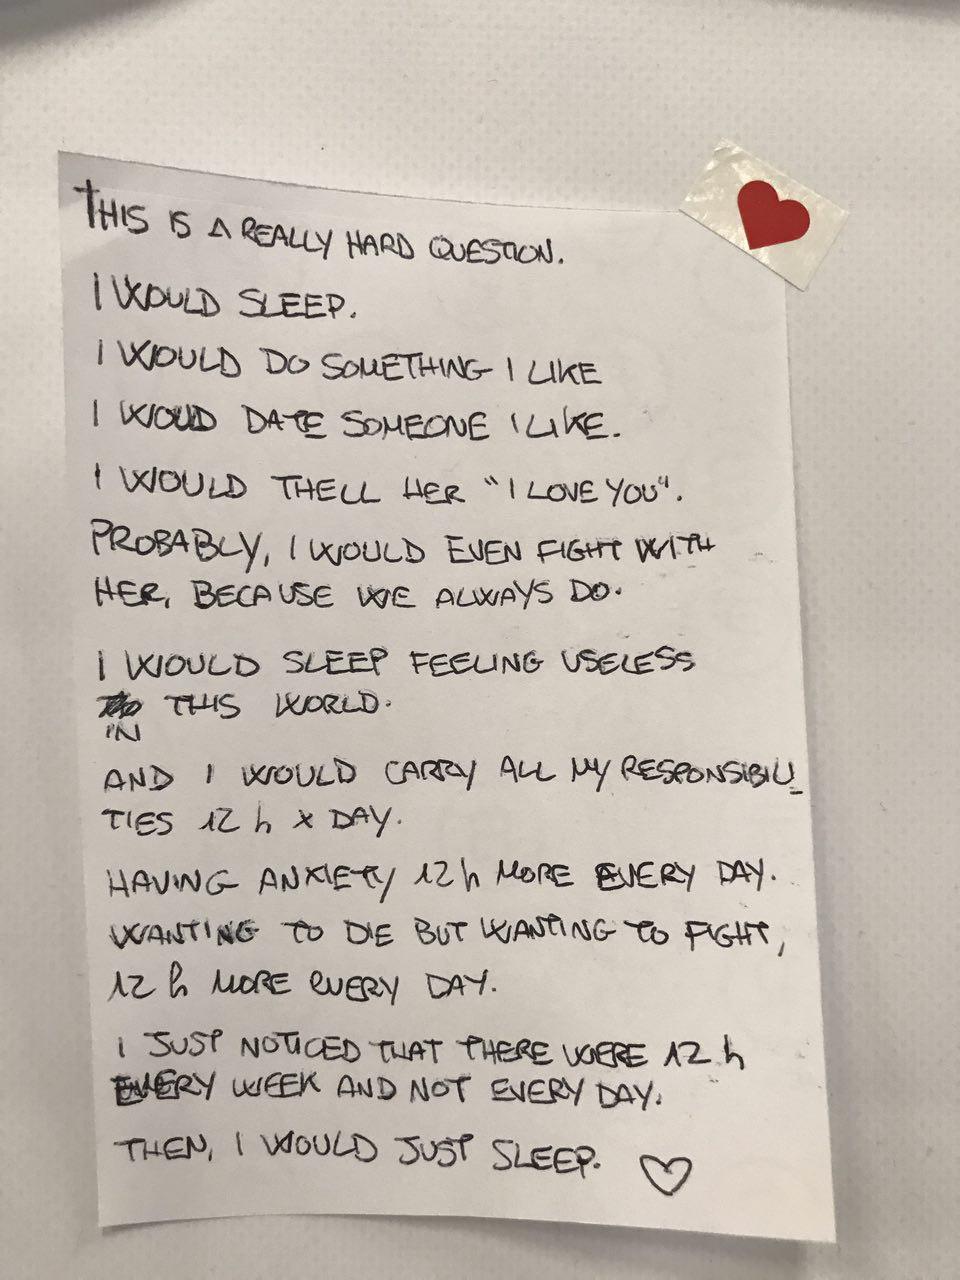 THIS IS A REALLY HARD QUESTION.
I WOULD SLEEP.
I WOULD DO SOMETHING I LIKE
I WOULD DATE SOMEONE I LIKE.
I WOULD THELL HER "I LOVE YOU".
PROBABLY, I WOULD EVEN FIGHT WITH
HER, BECAUSE WE ALWAYS DO.
I WOULD SLEEP FEELING USELESS
IN THIS WORLD.
AND I WOULD CARRY ALL MY RESPONSIBILI_
TIES 12 h x DAY.
HAVING ANXIETY 12 h MORE EVERY DAY.
WANTING TO DIE BUT WANTING TO FIGHT,
12 h MORE EVERY DAY.
I JUST NOTICED THAT THERE WERE 12 h
EVERY WEEK AND NOT EVERY DAY.
THEN, I WOULD JUST SLEEP. ♡